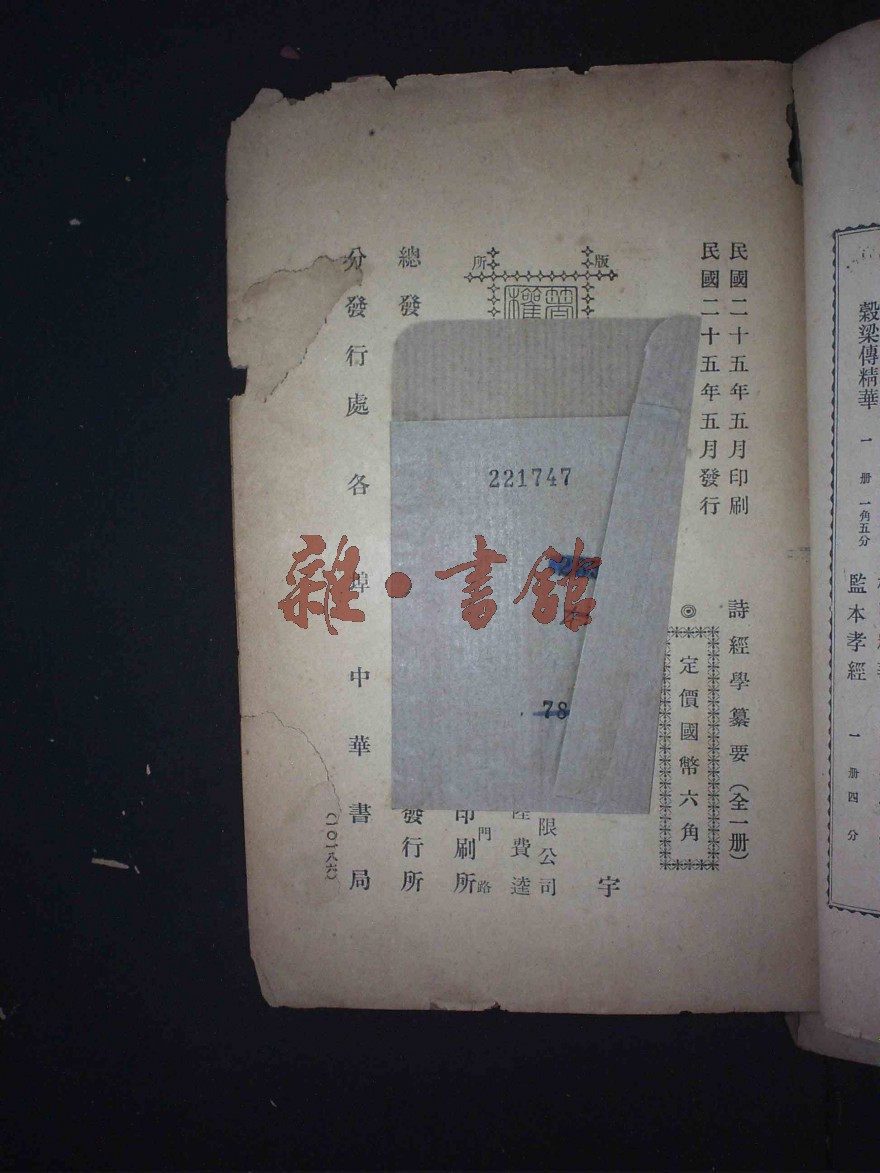 民國二十五年五月印刷
民國二十五年五月發行
詩經學纂要（全一册）
◎
定價國幣六角
版
所
權
宇
限公司
陸費逵
門路
印刷所
總發
發行所
分發行處 各埠中華書局
（一〇一八六）
221747
78
雜·書館
穀梁傳精華 一册 一角五分
監本孝經 一册 四分